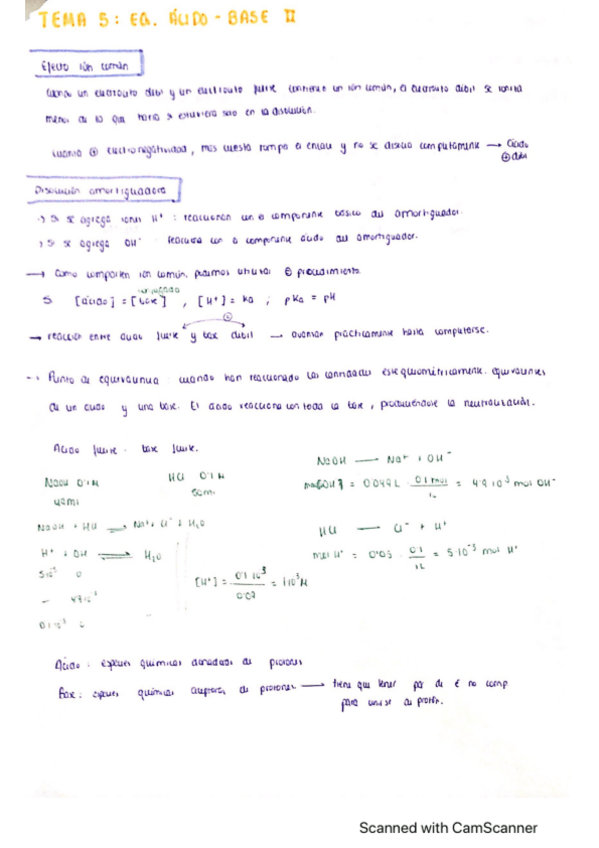 TEMA 5: EQ. ÁCIDO - BASE II
Efecto ión común
Cuando un electrolito débil y un electrolito fuerte contienen un ión común, el electrolito débil se ioniza
menos de lo que haría si estuviera solo en la disolución.
Cuanta ⊕ electronegatividad, más cuesta romper el enlace y no se disocia completamente → Ácido
⊕ débil
Disolución amortiguadora
→ Si se agrega iones H⁺ : reaccionan con el componente básico del amortiguador.
→ Si se agrega OH⁻ : reacciona con el componente ácido del amortiguador.
→ Como comparten ión común, podemos utilizar el procedimiento.
conjugada
Si [ácido] = [base] , [H⁺] = Ka ; pKa = pH
→ reacción entre ácido fuerte y base débil → avanzan prácticamente hasta completarse.
→ Punto de equivalencia : cuando han reaccionado las cantidades estequiométricamente equivalentes
de un ácido y una base. El ácido reacciona con toda la base, produciéndose la neutralización.
Ácido fuerte - base fuerte.
NaOH 0'1M HCl 0'1 M
49ml 50ml
NaOH → Na⁺ + OH⁻
mol OH = 0'049 L · 0'1 mol / 1L = 4'9·10⁻³ mol OH⁻
NaOH + HCl ⇌ Na⁺ + Cl⁻ + H₂O
HCl → Cl⁻ + H⁺
H⁺ + OH ⇌ H₂O
mol H⁺ = 0'05 · 0'1 / 1L = 5·10⁻³ mol H⁺
5·10⁻³ 0
[H⁺] = 0'1·10⁻³ / = 1·10⁻³M
- 4'9·10⁻³
0'1·10⁻³
Ácido : especies químicas donadoras de protones
Base : especies químicas aceptoras de protones → tiene que tener par de e⁻ no comp
para unirse al protón.
Scanned with CamScanner